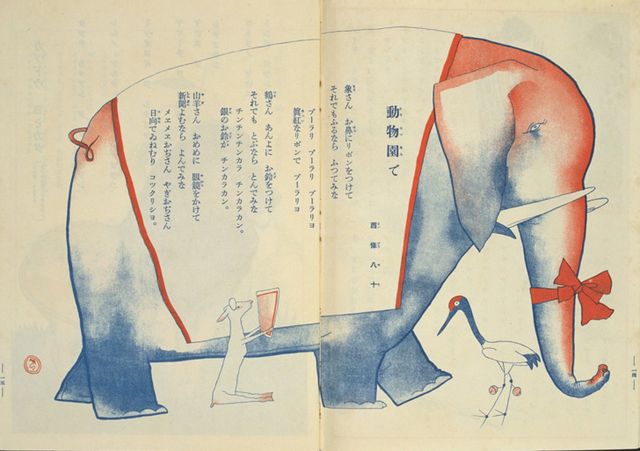 動物園で
西條八十
象さん お鼻にリボンをつけて
それでもふるなら ふつてみな
ブーラリ ブーラリ ブーラリヨ
眞紅なリボンで ブーラリヨ
鶴さん あんよに お鈴をつけて
それでも とぶなら とんでみな
チンチンチンカラ チンカラカン。
銀のお鈴が チンカラカン。
山羊さん おめめに 眼鏡をかけて
新聞よむなら よんでみな
メエメエおぢさん やぎおぢさん
日向でゐねむり コツクリシヨ。